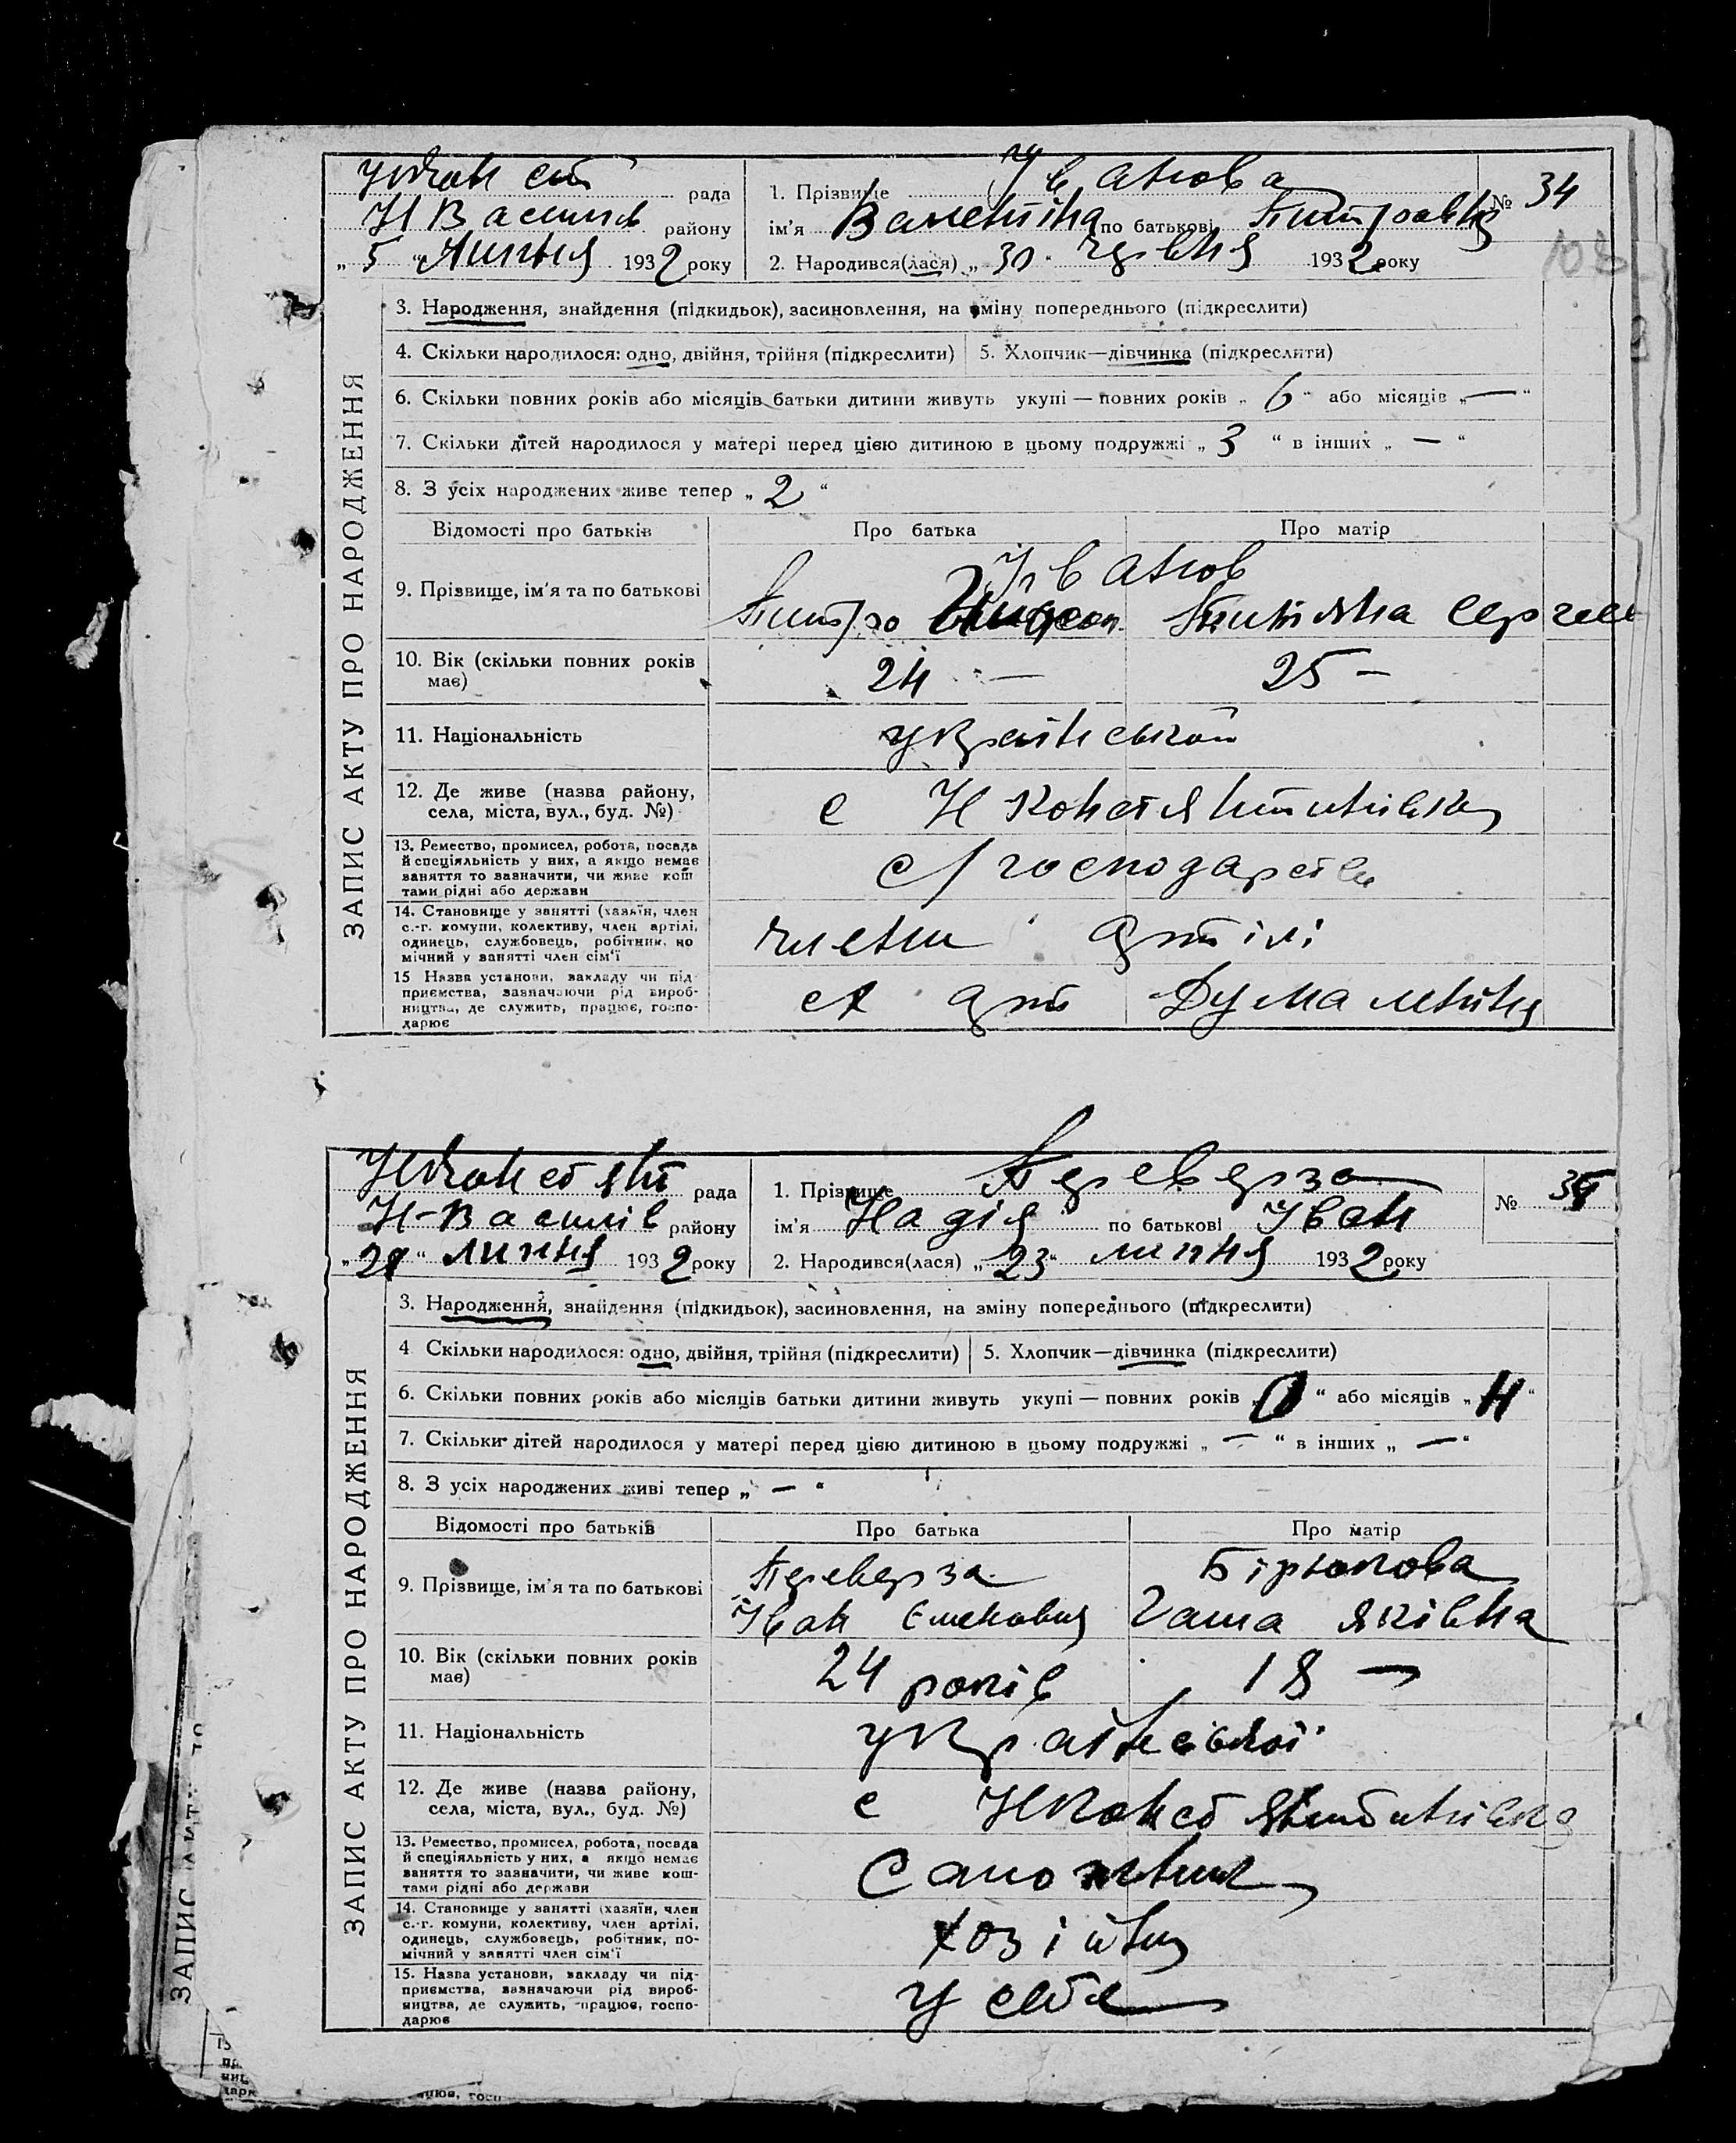 рада
Н Василів району
„ 5 “ Липня 1932 року
1. Прізвище Іванова
ім'я Валентіна по батькові
№ 34
2. Народився(лася) „ 30 Червня 1932 року
3. Народження, знайдення (підкидьок), засиновлення, на зміну попереднього (підкреслити)
4. Скільки народилося: одно, двійня, трійня (підкреслити)
5. Хлопчик—дівчинка (підкреслити)
6. Скільки повних років або місяців батьки дитини живуть укупі — повних років „ 6 “ або місяців „ — “
7. Скільки дітей народилося у матері перед цією дитиною в цьому подружжі „ 3 “ в інших „ — “
8. З усіх народжених живе тепер „ 2 “
ЗАПИС АКТУ ПРО НАРОДЖЕННЯ
Відомості про батьків Про батька Про матір
9. Прізвище, ім'я та по батькові
Іванов
10. Вік (скільки повних років
має)
24 — 25 –
11. Національність
української
12. Де живе (назва району,
села, міста, вул., буд. №)
с Н Констянтинівка
13. Ремество, промисел, робота, посада
й спеціяльність у них, а якщо немає
заняття то зазначити, чи живе кош
тами рідні або держави
с/господарство
14. Становище у занятті (хазяїн, член
с.-г. комуни, колективу, член артілі,
одинець, службовець, робітник, по
мічний у занятті член сім'ї
члени артілі
15 Назва установи, закладу чи під
приємства, зазначаючи рід вироб-
ництва, де служить, працює, госпо-
дарює
арт
НКонстянт рада
Н-Василів району
липня 1932 року
1. Прізвище Переверза
ім'я Надія по батькові Іван
№ 35
2. Народився(лася) „ 23 “ липня 1932 року
3. Народження, знайдення (підкидьок), засиновлення, на зміну попереднього (підкреслити)
4 Скільки народилося: одно, двійня, трійня (підкреслити)
5. Хлопчик—дівчинка (підкреслити)
6. Скільки повних років або місяців батьки дитини живуть укупі — повних років „ “ або місяців „ “
7. Скільки дітей народилося у матері перед цією дитиною в цьому подружжі „ — “ в інших „ — “
8. З усіх народжених живі тепер „ — “
ЗАПИС АКТУ ПРО НАРОДЖЕННЯ
Відомості про батьків Про батька Про матір
9. Прізвище, ім'я та по батькові
Переверза Бірюкова
Іван Гаша Яківна
10. Вік (скільки повних років
має)
24 років 18 —
11. Національність
української
12. Де живе (назва району,
села, міста, вул., буд. №)
с НКонстянтинівка
13. Ремество, промисел, робота, посада
й спеціяльність у них, а якщо немає
заняття то зазначити, чи живе кош-
тами рідні або держави
Сапожник
14. Становище у занятті (хазяїн, член
с.-г. комуни, колективу, член артілі,
одинець, службовець, робітник, по-
мічний у занятті член сім'ї
15. Назва установи, закладу чи під-
приємства, зазначаючи рід вироб-
ництва, де служить, працює, госпо-
дарює
у себе
ЗАПИС